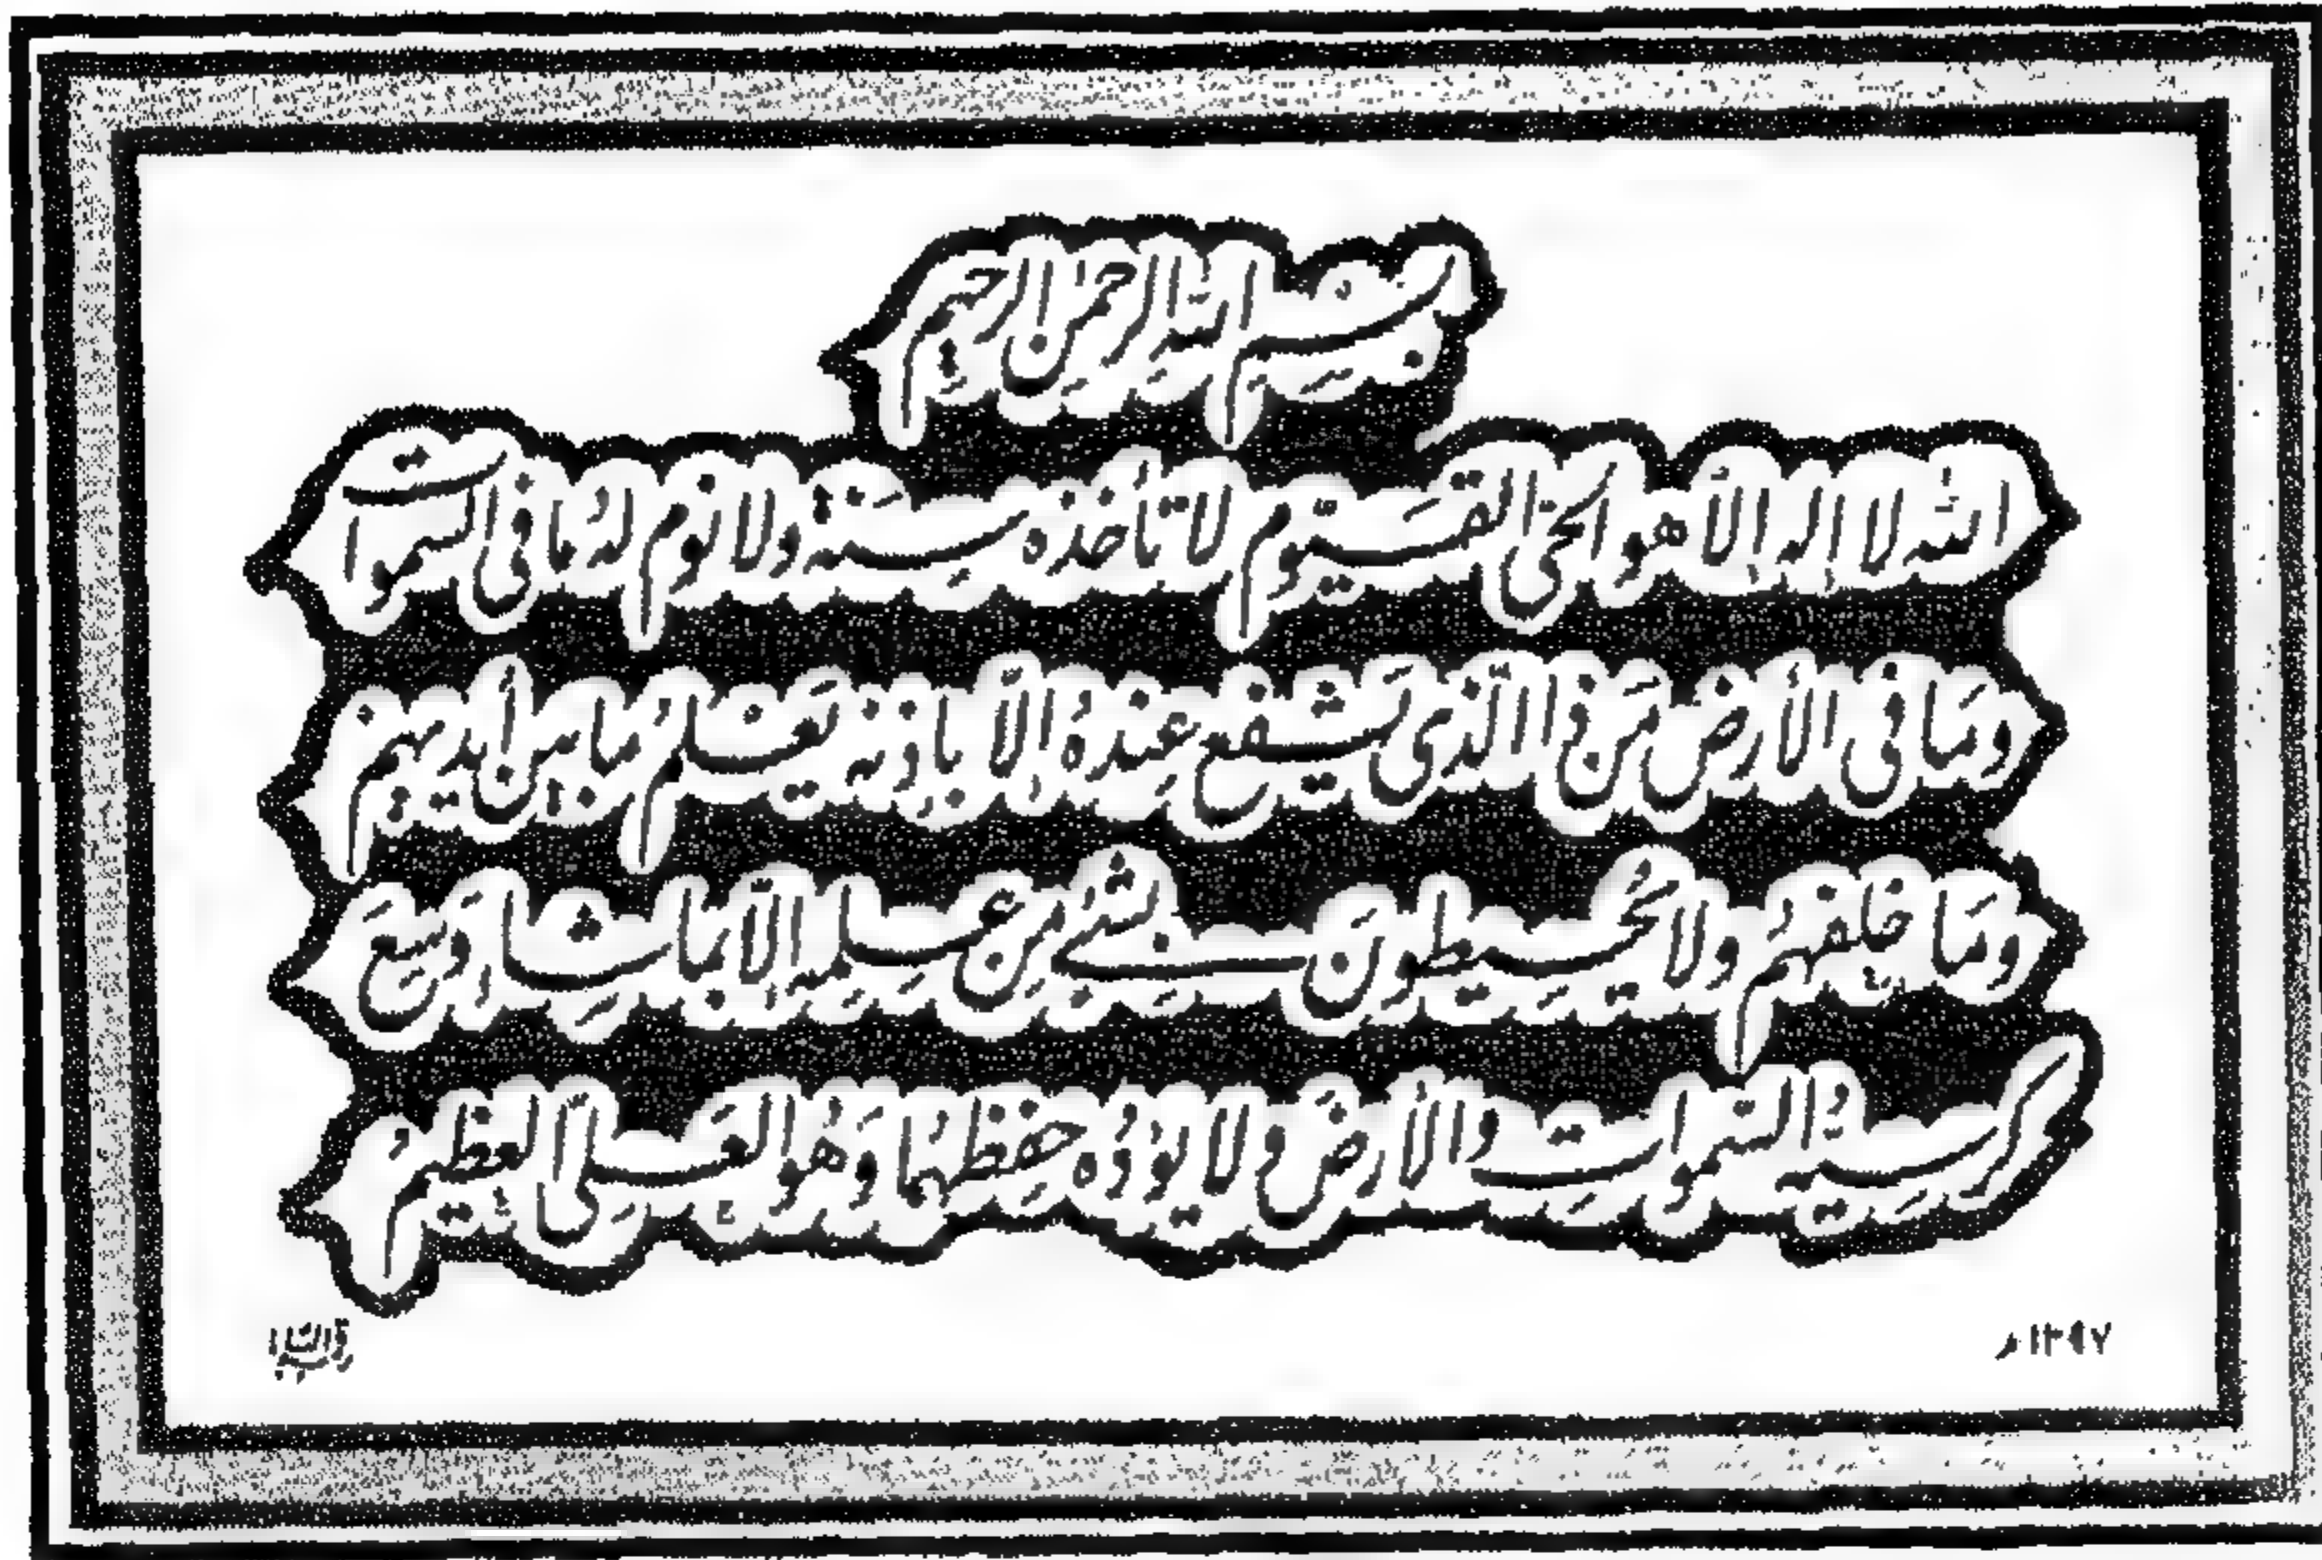 بسم الله الرحمن الرحيم
الله لا إله إلا هو الحي القيوم لا تأخذه سنة ولا نوم له ما في السموات
وما في الأرض من ذا الذي يشفع عنده إلا بإذنه يعلم ما بين أيديهم
وما خلفهم ولا يحيطون بشئ من علمه إلا بما شاء وسع
كرسيه السموات والأرض ولا يؤوده حفظهما وهو العلي العظيم
١٣٩٧